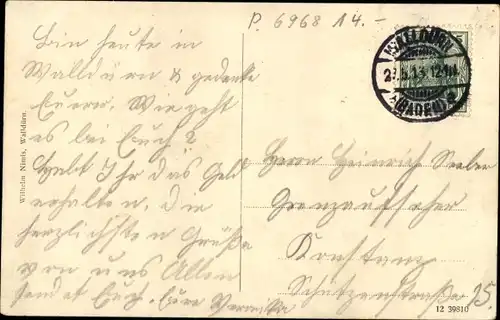 P. 6968 14.-
WALLDÜRN
27.5.13. 12-1N
(BADEN)
Bin heute in
Walldürn & gedenke
Eurer. Wie geht
es bei Euch?
Habt Ihr das Geld
erhalten. Die
herzlichsten Grüße
von uns Allen
sendet Euch Eure
Wilhelm Nimis, Walldürn.
Herrn Heinrich
Grenzaufseher
Konstanz
Schützenstraße 25.
12 39810